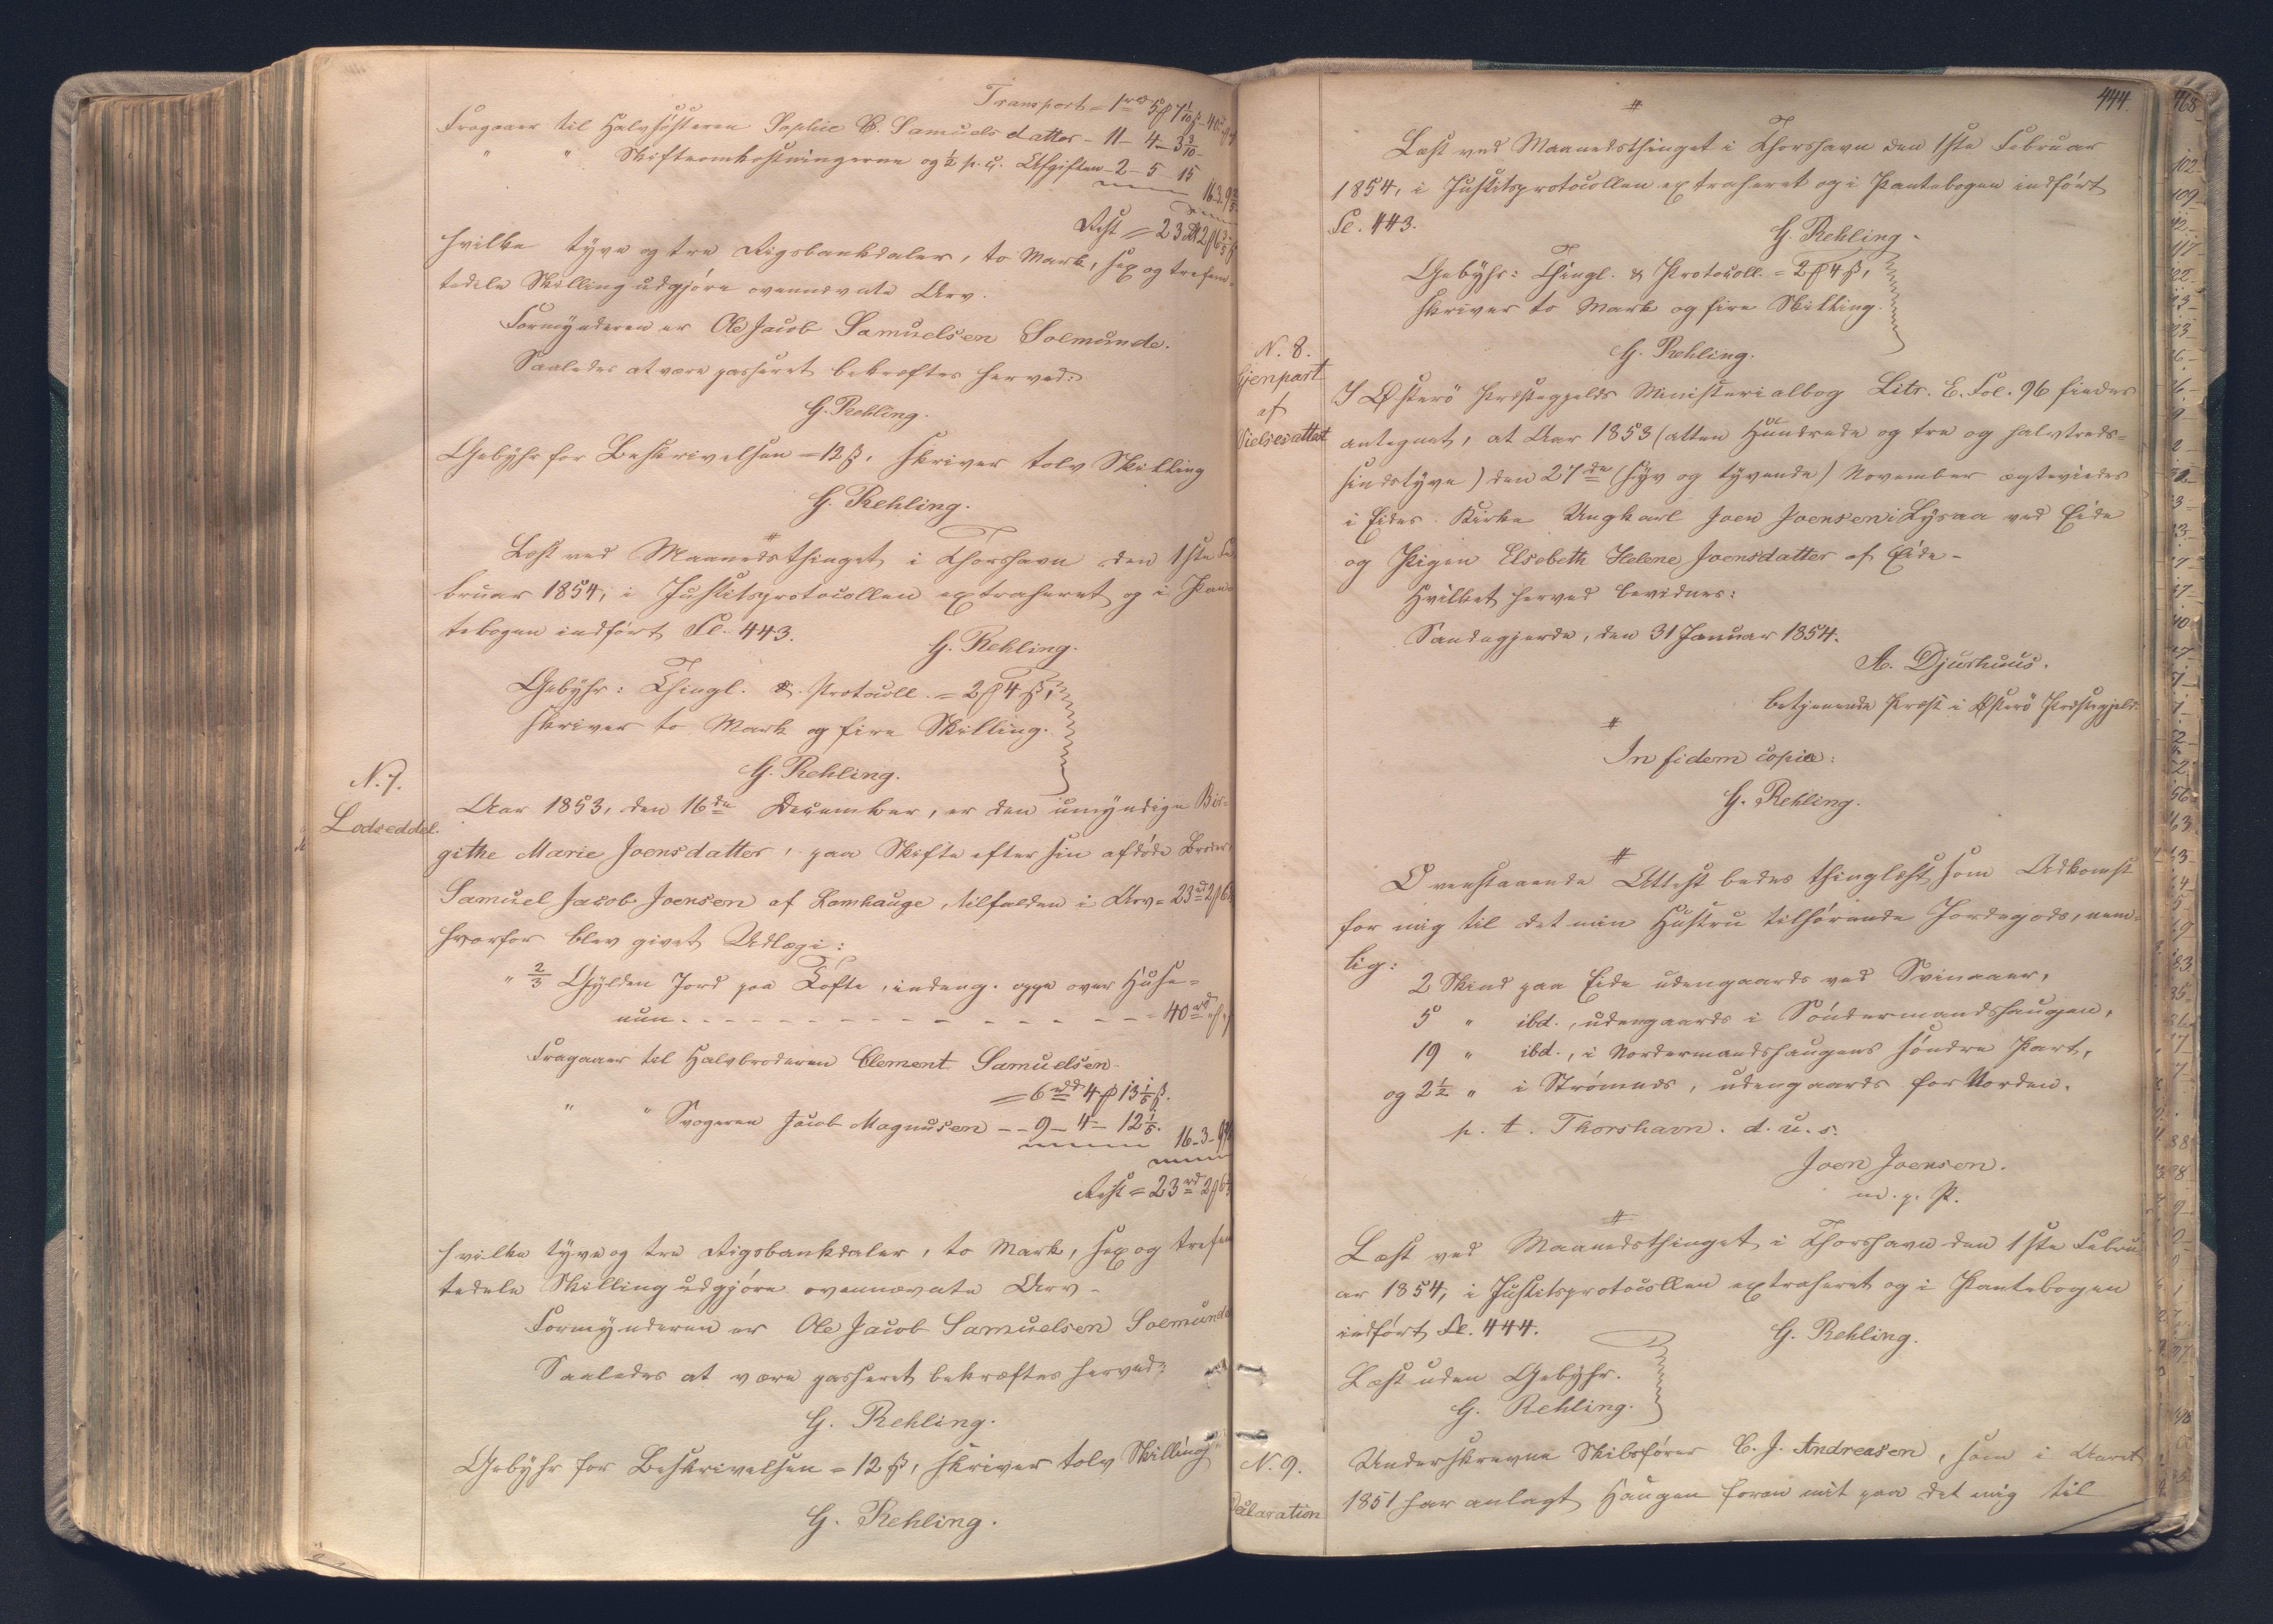 Transport = 1 rd 5 ₰ 7 1/10 ß - 40 rd
Fragaaer til Halvsøsteren Sophie E. Samuelsdatter - 11 - 4 - 3 3/10 -
" " Skifteomkostningerne og ½ p. c. Afgiften - 2 - 5 15
16 3 9 2/5
Rest = 23 rd 2 ₰ 6 3/5 ß
hvilke tyve og tre Rigsbankdaler, to Mark, sex og trefem-
tedele Skilling udgjøre ovennævnte Arv.
Formynderen er Ole Jacob Samuelsen Solmunde.
Saaledes at være passeret bekræftes herved:
G. Rehling.
Gebyhr for Beskrivelsen = 12 ß, skriver tolv Skilling
G. Rehling.
#
Læst ved Maanedsthinget i Thorshavn den 1ste Fe
bruar 1854, i Justitsprotocollen extraheret og i Pan-
tebogen indført Fol. 443.
G. Rehling.
Gebyhr: Thingl. & Protocoll. = 2 ₰ 4 ß,
skriver to Mark og fire Skilling.
G. Rehling.
N. 7.
Lodseddel.
Aar 1853, den 16de December, er den umyndige Bir-
githe Marie Joensdatter, paa Skifte efter sin afdøde Broder
Samuel Jacob Joensen af Lamhauge, tilfalden i Arv = 23 rd 2 ₰ 6
hvorfor blev givet Udlægi:
" 2/3 Gylden Jord paa Tofte, indeng. oppe over Huse-
nun - - - - - - - - - - - = 40 rd
Fragaaer til Halvbroderen Clement Samuelsen
= 6 rd 4 ₰ 13 1/5 ß.
" " Svogeren Jacob Magnusen - - 9 - 4 - 12 1/5.
16 - 3 - 9
Rest = 23 rd 2 ₰ 6
hvilke tyve og tre Rigsbankdaler, to Mark, sex og trefem
tedele Skilling udgjøre ovennævnte Arv -
Formynderen er Ole Jacob Samuelsen Solmunde
Saaledes at være passeret bekræftes herved:
G. Rehling.
Gebyhr for Beskrivelsen = 12 ß, skriver tolv Skilling
G. Rehling.
444.
#
Læst ved Maanedsthinget i Thorshavn den 1ste Februar
1854, i Justitsprotocollen extraheret og i Pantebogen indført
Fol. 443.
G. Rehling.
Gebyhr: Thingl. & Protocoll. = 2 ₰ 4 ß,
skriver to Mark og fire Skilling.
G. Rehling.
N. 8.
Gjenpart
af
Vielsesattest
I Østerö Præstegjelds Ministerialbog Litr. E. Fol. 96 findes
antegnet, at Aar 1853 (atten Hundrede og tre og halvtreds-
sindstyve) den 27de (syv og tyvende) November ægteviedes
i Eides Kirke Ungkarl Joen Joensen i Lysaa ved Eide
og Pigen Elsebeth Helene Joensdatter af Eide -
Hvilket herved bevidnes:
Sandegjerde, den 31 Januar 1854.
A. Djurhuus.
betjenende Præst i Østerö Præstegjeld.
#
In fidem copiæ:
G. Rehling.
#
Ovenstaaende Attest bedes thinglæst som Adkomst
for mig til det min Hustru tilhørende Jordegods, nem-
lig:
2 Skind paa Eide udengaards ved Svinaaer,
5 " ibd., udengaards i Søndermandshaugen,
19 " ibd., i Nordermandshaugens søndre Part,
og 2½ " i Strømnes, udengaards for Norden.
p. t. Thorshavn. d. u. s.
Joen Joensen.
m. p. P.
#
Læst ved Maanedsthinget i Thorshavn den 1ste Febru
ar 1854, i Justitsprotocollen extraheret og i Pantebogen
indført Fol. 444.
G. Rehling.
Læst uden Gebyhr.
G. Rehling.
N. 9.
Declaration
Underskrevne Skibsfører C. J. Andreasen, som i Aaret
1851 har anlagt Haugen foran mit paa det mig til